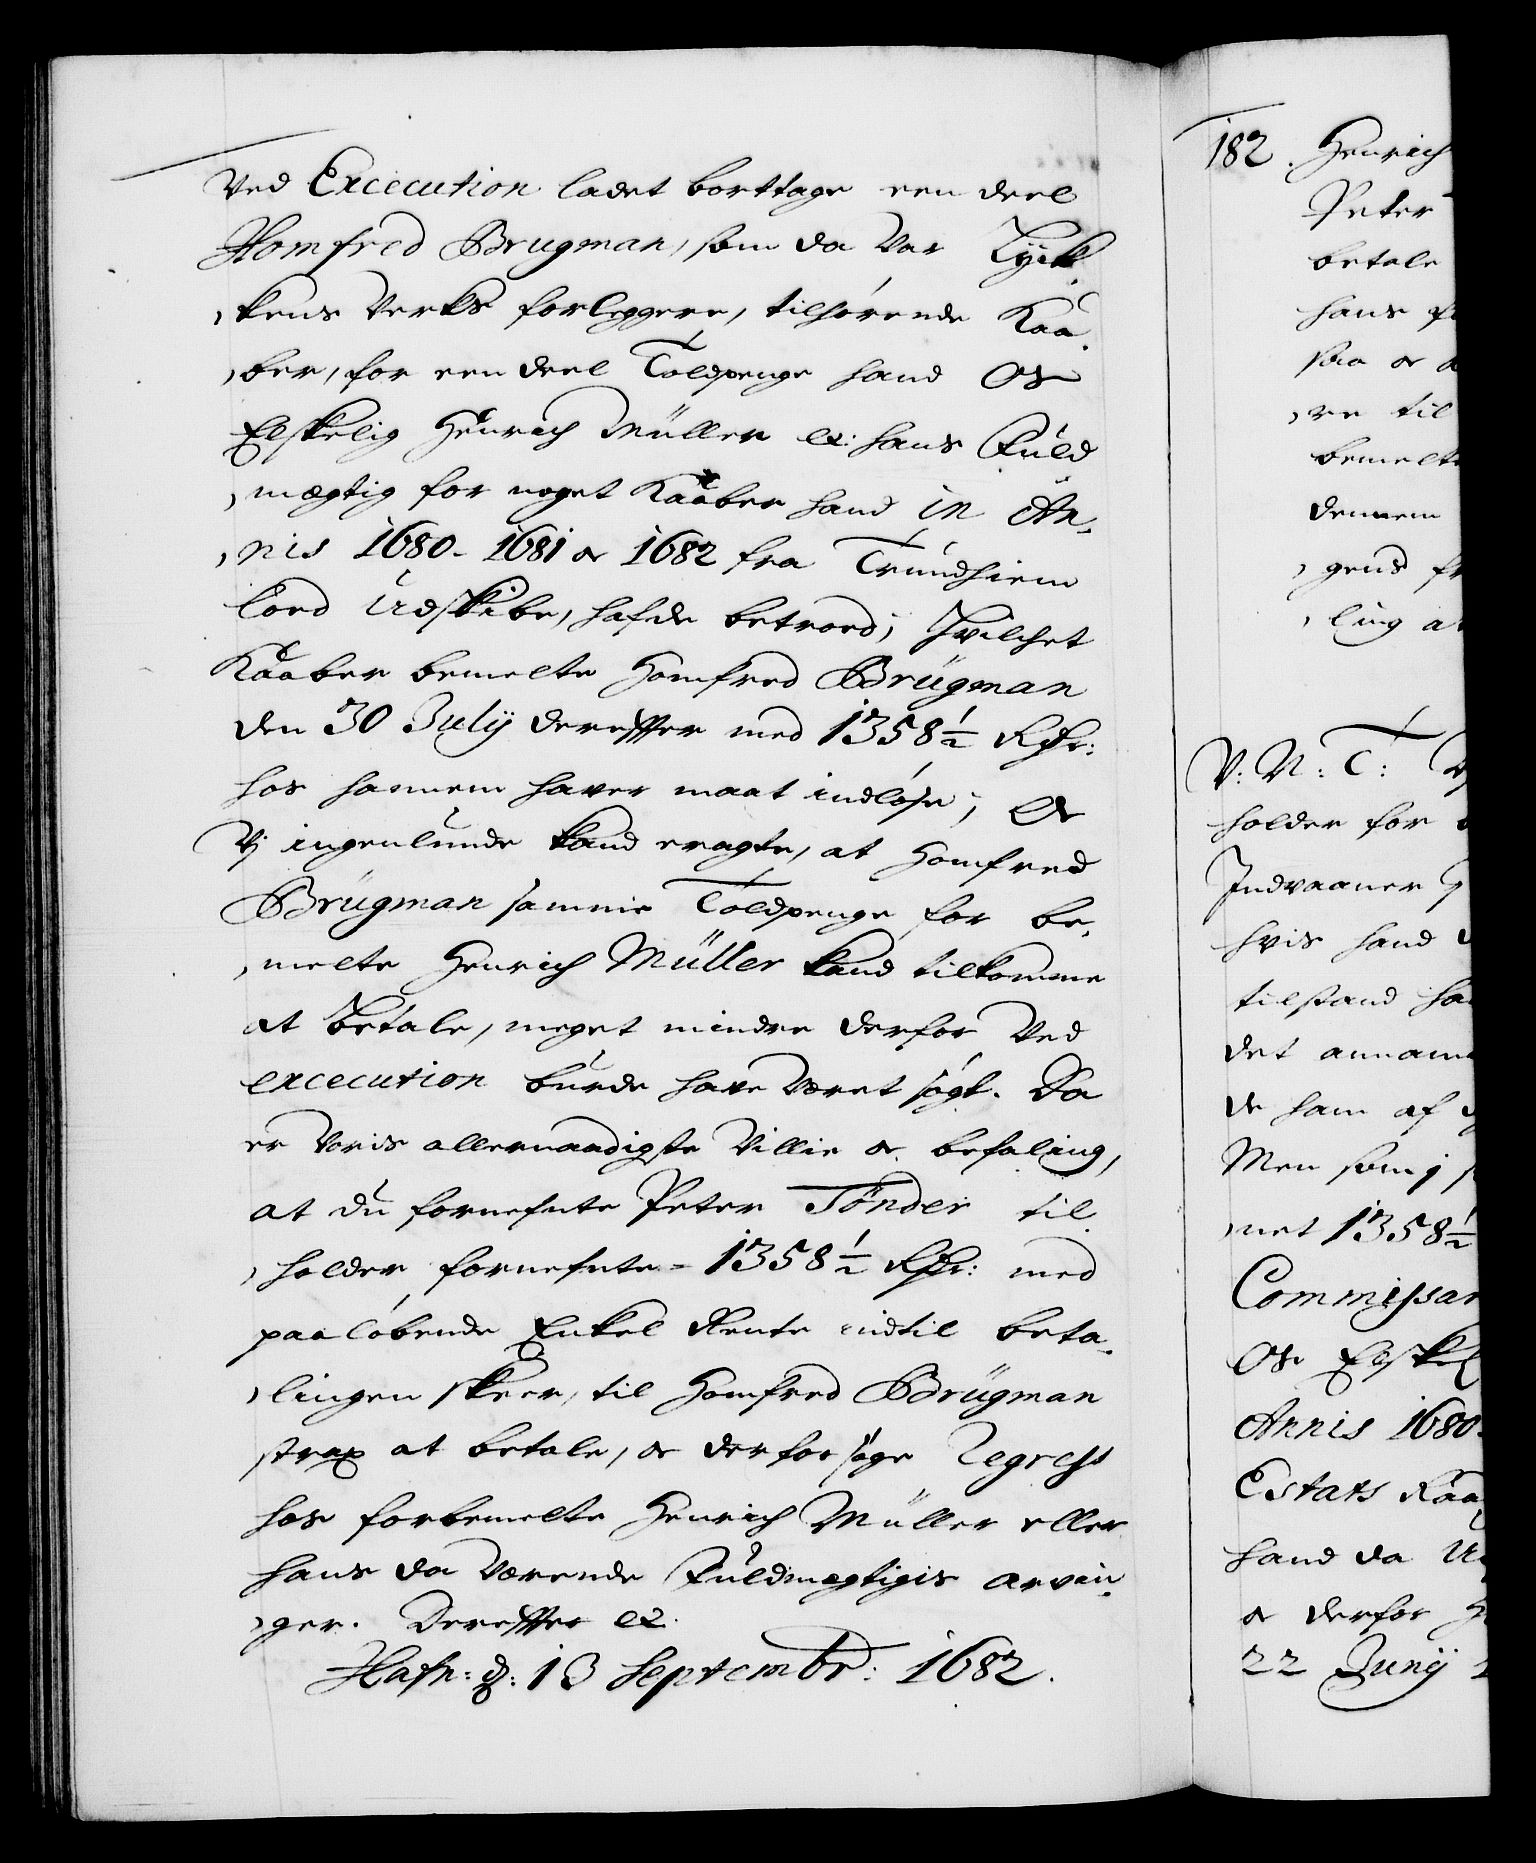 Ved Excecution ladet borttage een deel
Homfred Brugman, som da var Lyck-
kens Verks forleggere, tilhørende Kaa-
ber, for een deel Toldpenge hand Os
Elskelig Henrich Müller etc: hans Fuld
mægtig for noget Kaaber hand in An-
nis 1680. 1681 og 1682 fra Trundhiem
loed Udskibe, hafde betroed; Hvilchet
Kaaber bemelte Homfred Brügman
den 30 Julij dereffter med 1358½ Rdr:
hos hannem haver maat indløse; Og
Vj ingenlunde kand eragte, at Homfred
Brügman samme Toldpenge for be-
melte Henrich Müller kand tilkomme
at betale, meget mindre derfor Ved
excecution burde have været søgt. Da
er Voris allernaadigste Villie og befaling,
at du fornefnte Peter Tønder til
holder fornefnte 1358½ Rdr: med
paaløbende Enkel Rente indtil beta-
lingen skeer, til Homfred Brügman
strax at betale, og derfor søge Regress
hos forbemelte Henrich Müller eller
hans da værende Fuldmegtigis arvin-
ger. Dereffter etc.
Hafn: d: 13 Septembr: 1682.
182. Henrich
Peter
betale
hans
saa og
re til
bemelte
dennem
gens
ling
V: N: T:
holder for
Indvaaner
hvis hand
tilstand
det annam
de ham af
Men som j
net 1358½
Commissar
Os Elskel
Annis 1680.
Estats Raa
hand da
og derfor
22 Junij